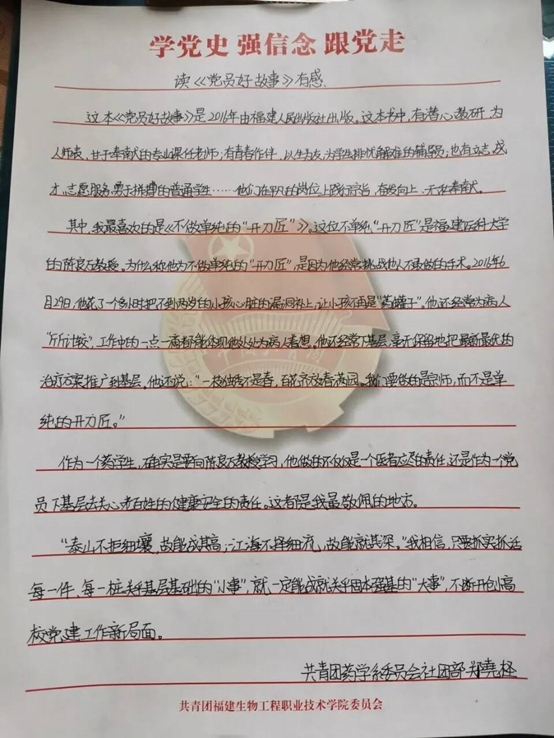 学党史 强信念 跟党走
读《党员好故事》有感
这本《党员好故事》是2016年由福建人民出版社出版。这本书中，有潜心教研、为
人师表、甘于奉献的专业课任老师；有青春作伴、以生为友、为学生排忧解难的辅导员；也有立志成
才、志愿服务、勇于拼搏的普通学生……他们在平凡的岗位上践行宗旨，奋发向上、无私奉献。
其中，我最喜欢的是《不做单纯的“开刀匠”》。这位不单纯“开刀匠”是福建医科大学
的陈良万教授。为什么称他为不做单纯的“开刀匠”，是因为他经常挑战他人不敢做的手术。2016年6
月29日，他花了一个多小时把不到两岁的小孩心脏的漏洞补上，让小孩不再是“药罐子”。他还经常为病人
“斤斤计较”，工作中的一点一滴都能体现他处处为病人着想。他还经常下基层，毫无保留地把最新最优的
治疗方案推广到基层。他还说：“一枝独秀不是春，百花齐放春满园。我们要做的是宗师，而不是单
纯的开刀匠。”
作为一个药学生，确实是要向陈良万教授学习，他做的不仅仅是一个医者应尽的责任，还是作为一个党
员下基层去关心老百姓的健康安全的责任。这都是我最敬佩的地方。
“泰山不拒细壤，故能成其高；江海不择细流，故能就其深。”我相信，只要抓实抓活
每一件、每一桩关乎基层基础的“小事”，就一定能成就关乎固本强基的“大事”，不断开创高
校党建工作新局面。
共青团药学系委员会社团部 郑尧
共青团福建生物工程职业技术学院委员会